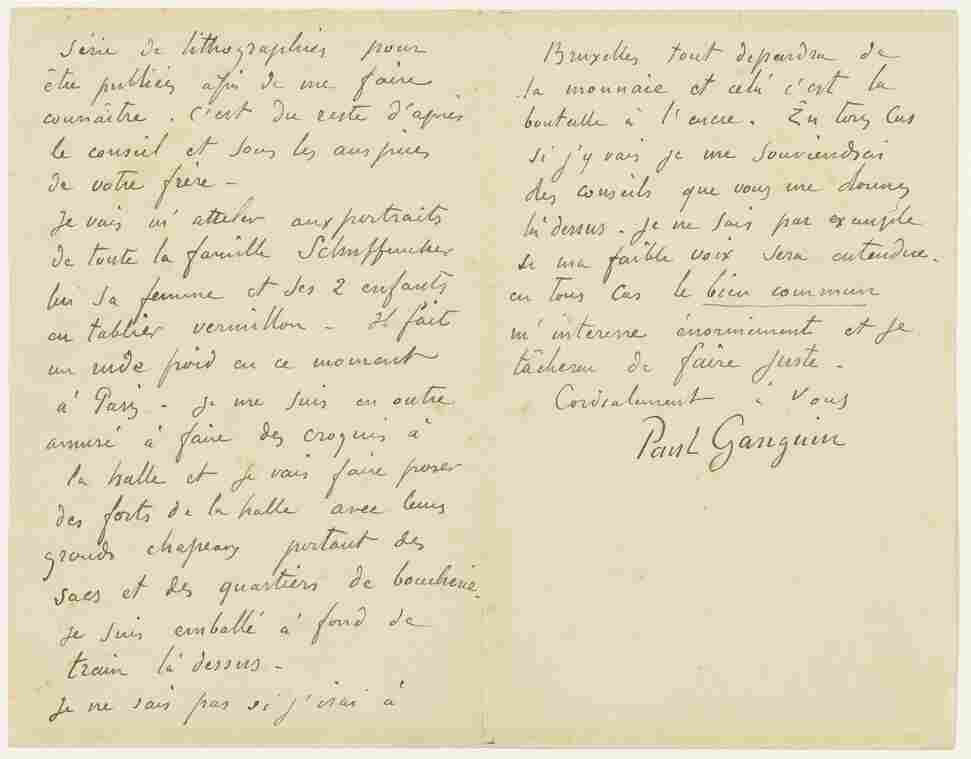 série de lithographies pour
être publiées afin de me faire
connaître. C'est du reste d'après
le conseil et sous les auspices
de votre frère -
Je vais m'atteler aux portraits
de toute la famille Schuffnecker
lui sa femme et ses 2 enfants
en tablier vermillon - Il fait
un rude froid en ce moment
à Paris - Je me suis en outre
amusé à faire des croquis à
la halle et je vais faire poser
des forts de la halle avec leurs
grands chapeaux portant des
sacs et des quartiers de boucherie.
Je suis emballé à fond de
train là dessus -
Je ne sais pas si j'irai à
Bruxelles tout dépendra de
la monnaie et celà c'est la
bouteille à l'encre. En tous cas
si j'y vais je me souviendrai
des conseils que vous me donnez
là dessus. Je ne sais par exemple
si ma faible voix sera entendue.
en tous cas le bien commun
m'interesse énormément et je
tâcherai de faire juste.
Cordialement à vous
Paul Gauguin